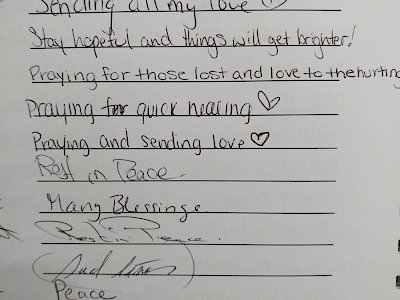 Sending all my love ♡
Stay hopeful and things will get brighter!
Praying for those lost and love to the hurting
Praying for quick healing ♡
Praying and sending love ♡
Rest in Peace.
Many Blessings.
Rest in Peace.
Sad
Peace